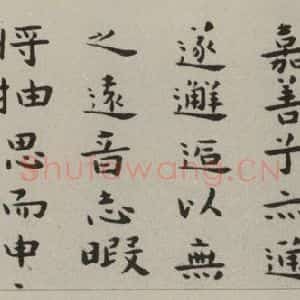 嘉善乎
遂邂逅以無
之遠音志暇
將抽思而申
Shufawang.CN